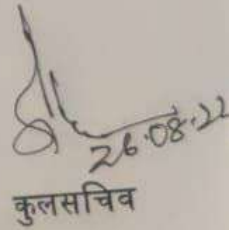 26.08.22
कुलसचिव